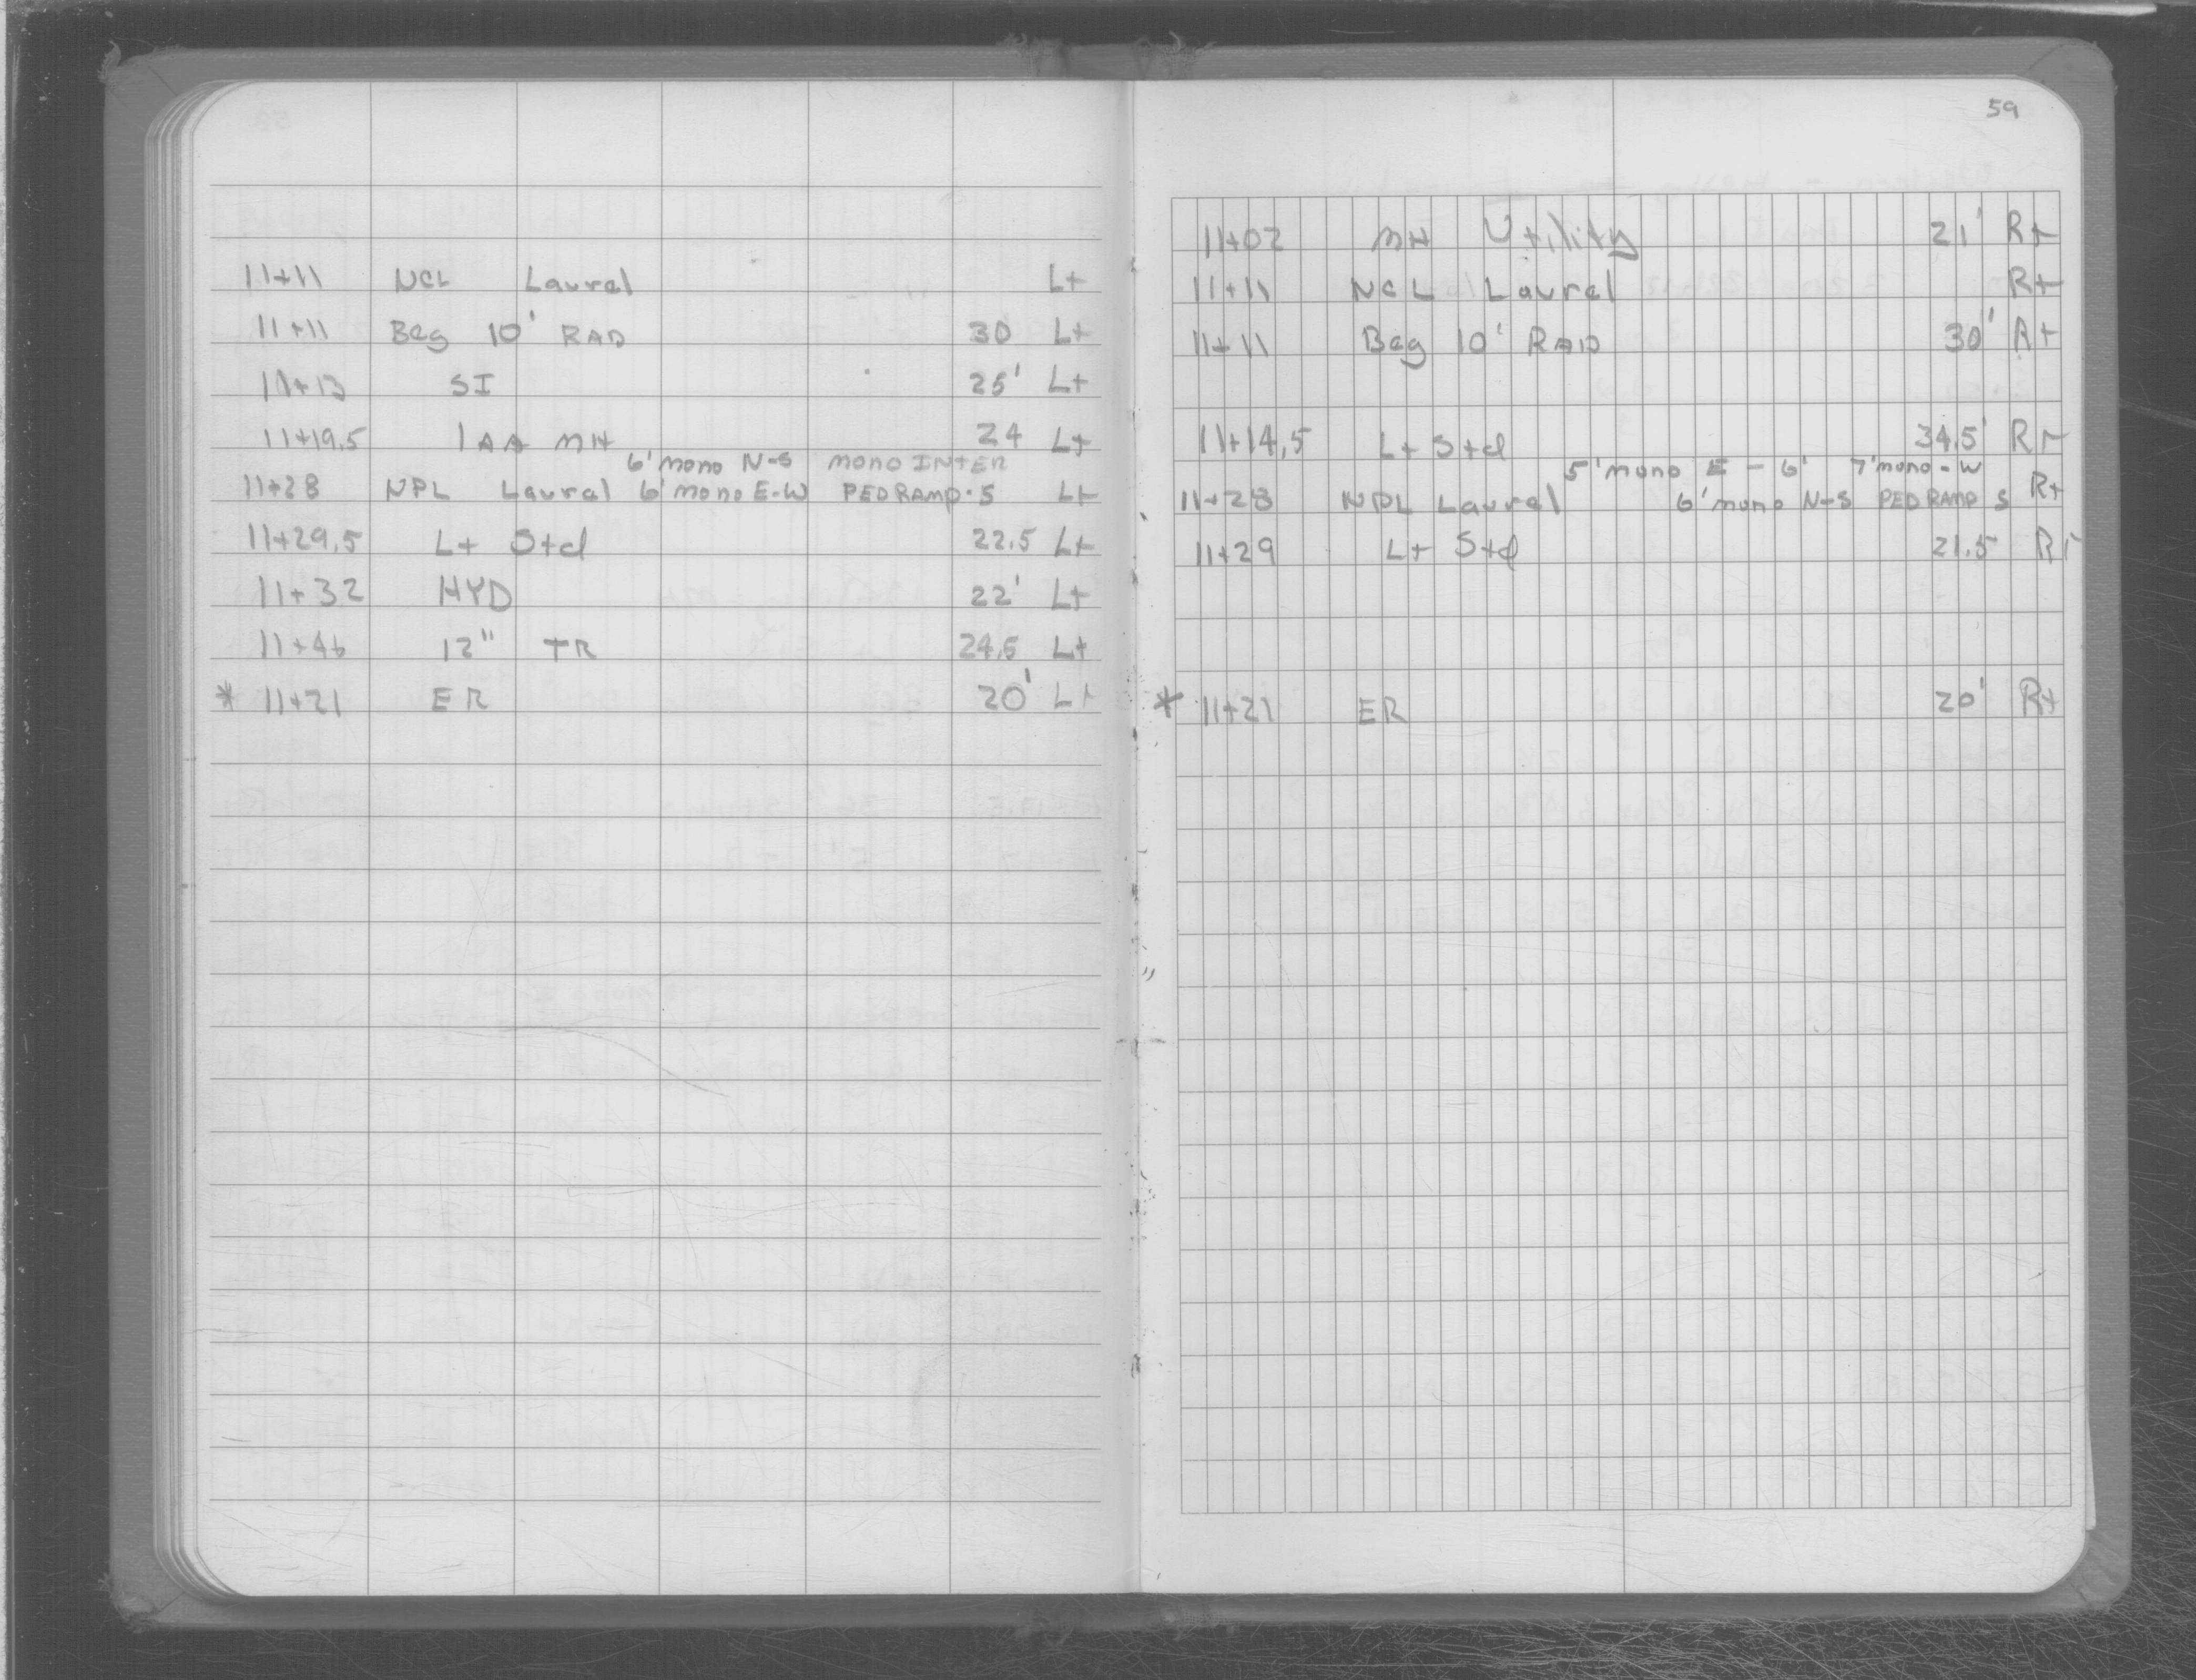 11+11 NCL Laurel Lt
11+11 Beg 10' RAD 30 Lt
11+13 SI 25' Lt
11+19.5 1AA MH 24 Lt
6' mono N-S mono INTER
11+28 NPL Laurel 6' mono E-W PED RAMP-S Lt
11+29.5 Lt Std 22.5 Lt
11+32 HYD 22' Lt
11+46 12" TR 24.5 Lt
* 11+21 ER 20' Lt
59
11+02 MH Utility 21' Rt
11+11 NCL Laurel Rt
11+11 Beg 10' RAD 30' Rt
11+14.5 Lt Std 34.5' Rt
5' mono E - 6' 7' mono - W
11+28 NPL Laurel 6' mono N-S PED RAMP S Rt
11+29 Lt Std 21.5 Rt
* 11+21 ER 20' Rt